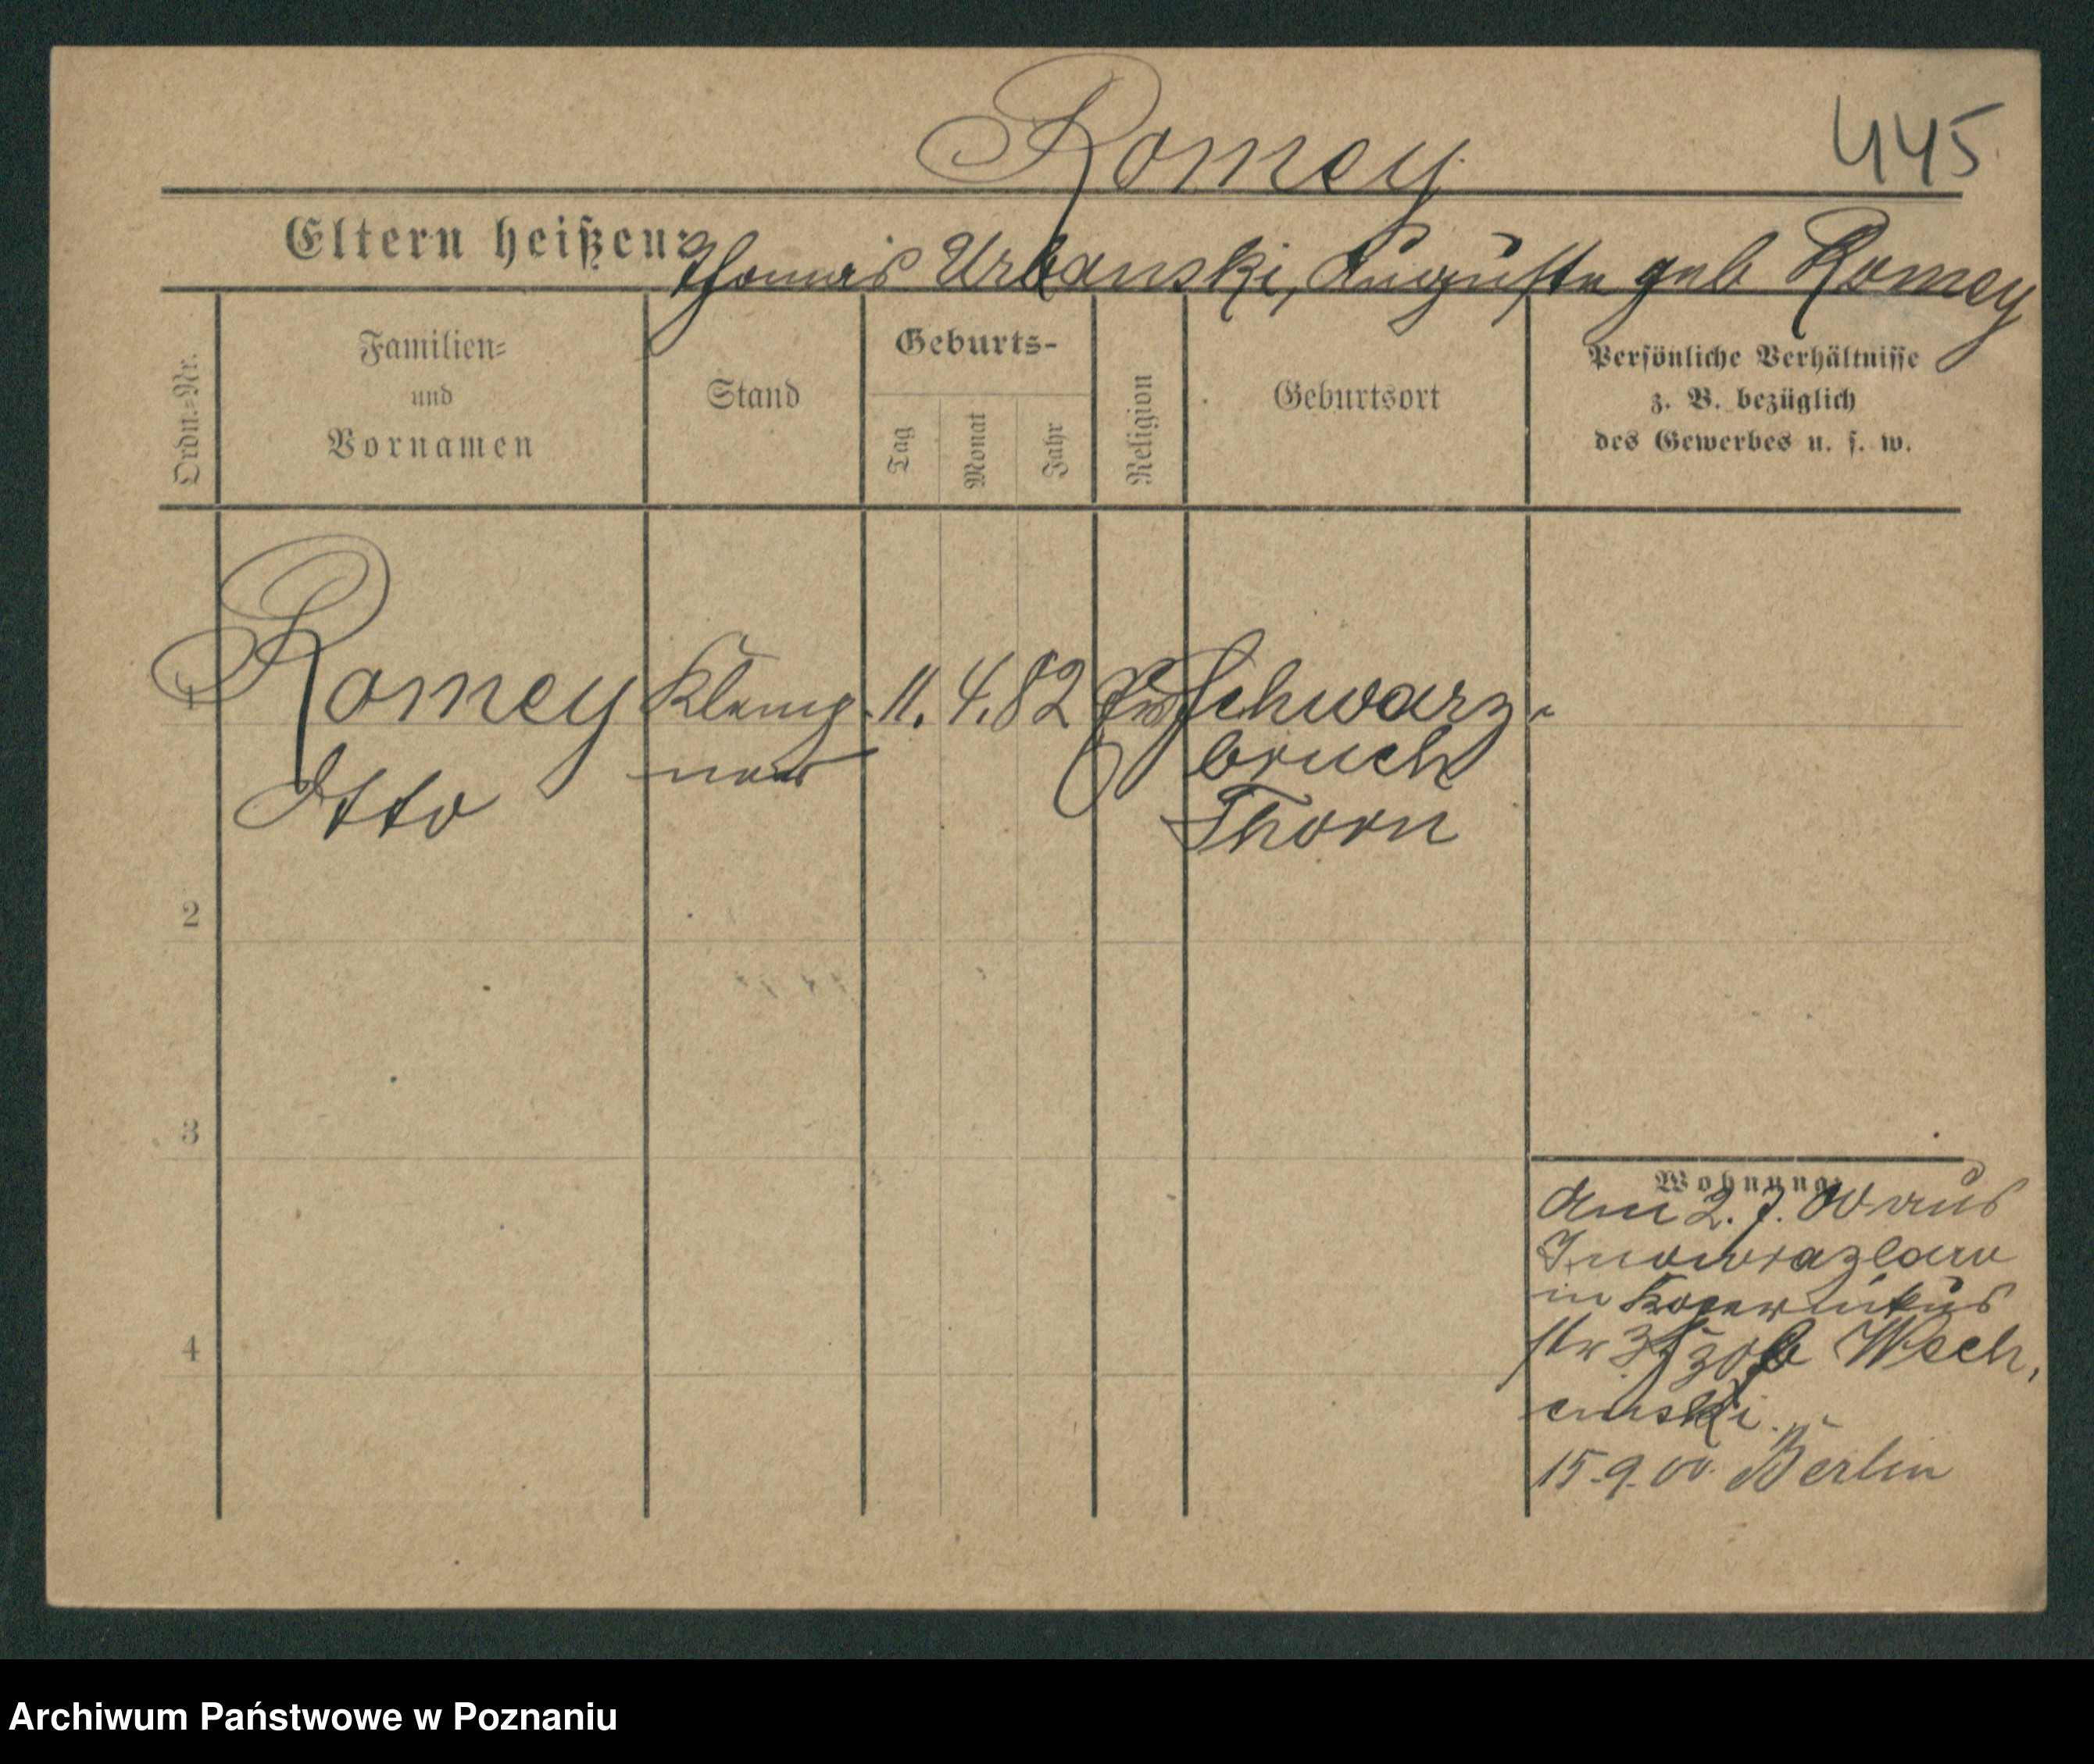 Romey
445
Eltern heißen: Thomas Urbanski, Auguste geb Romey
Ordn.=Nr.
Familien=
und
Vornamen
Stand
Geburts-
Tag
Monat
Jahr
Religion
Geburtsort
Persönliche Verhältnisse
z. B. bezüglich
des Gewerbes u. s. w.
1
Romey Klemp- 11. 4. 82 Ev Schwarz-
Otto ner bruch
Thorn
2
3
4
Wohnung:
Am 2. 7. 00 aus
Inowrazlaw
in Kopernikus
str
Wech,
cinski.
15.9.00. Berlin
Archiwum Państwowe w Poznaniu